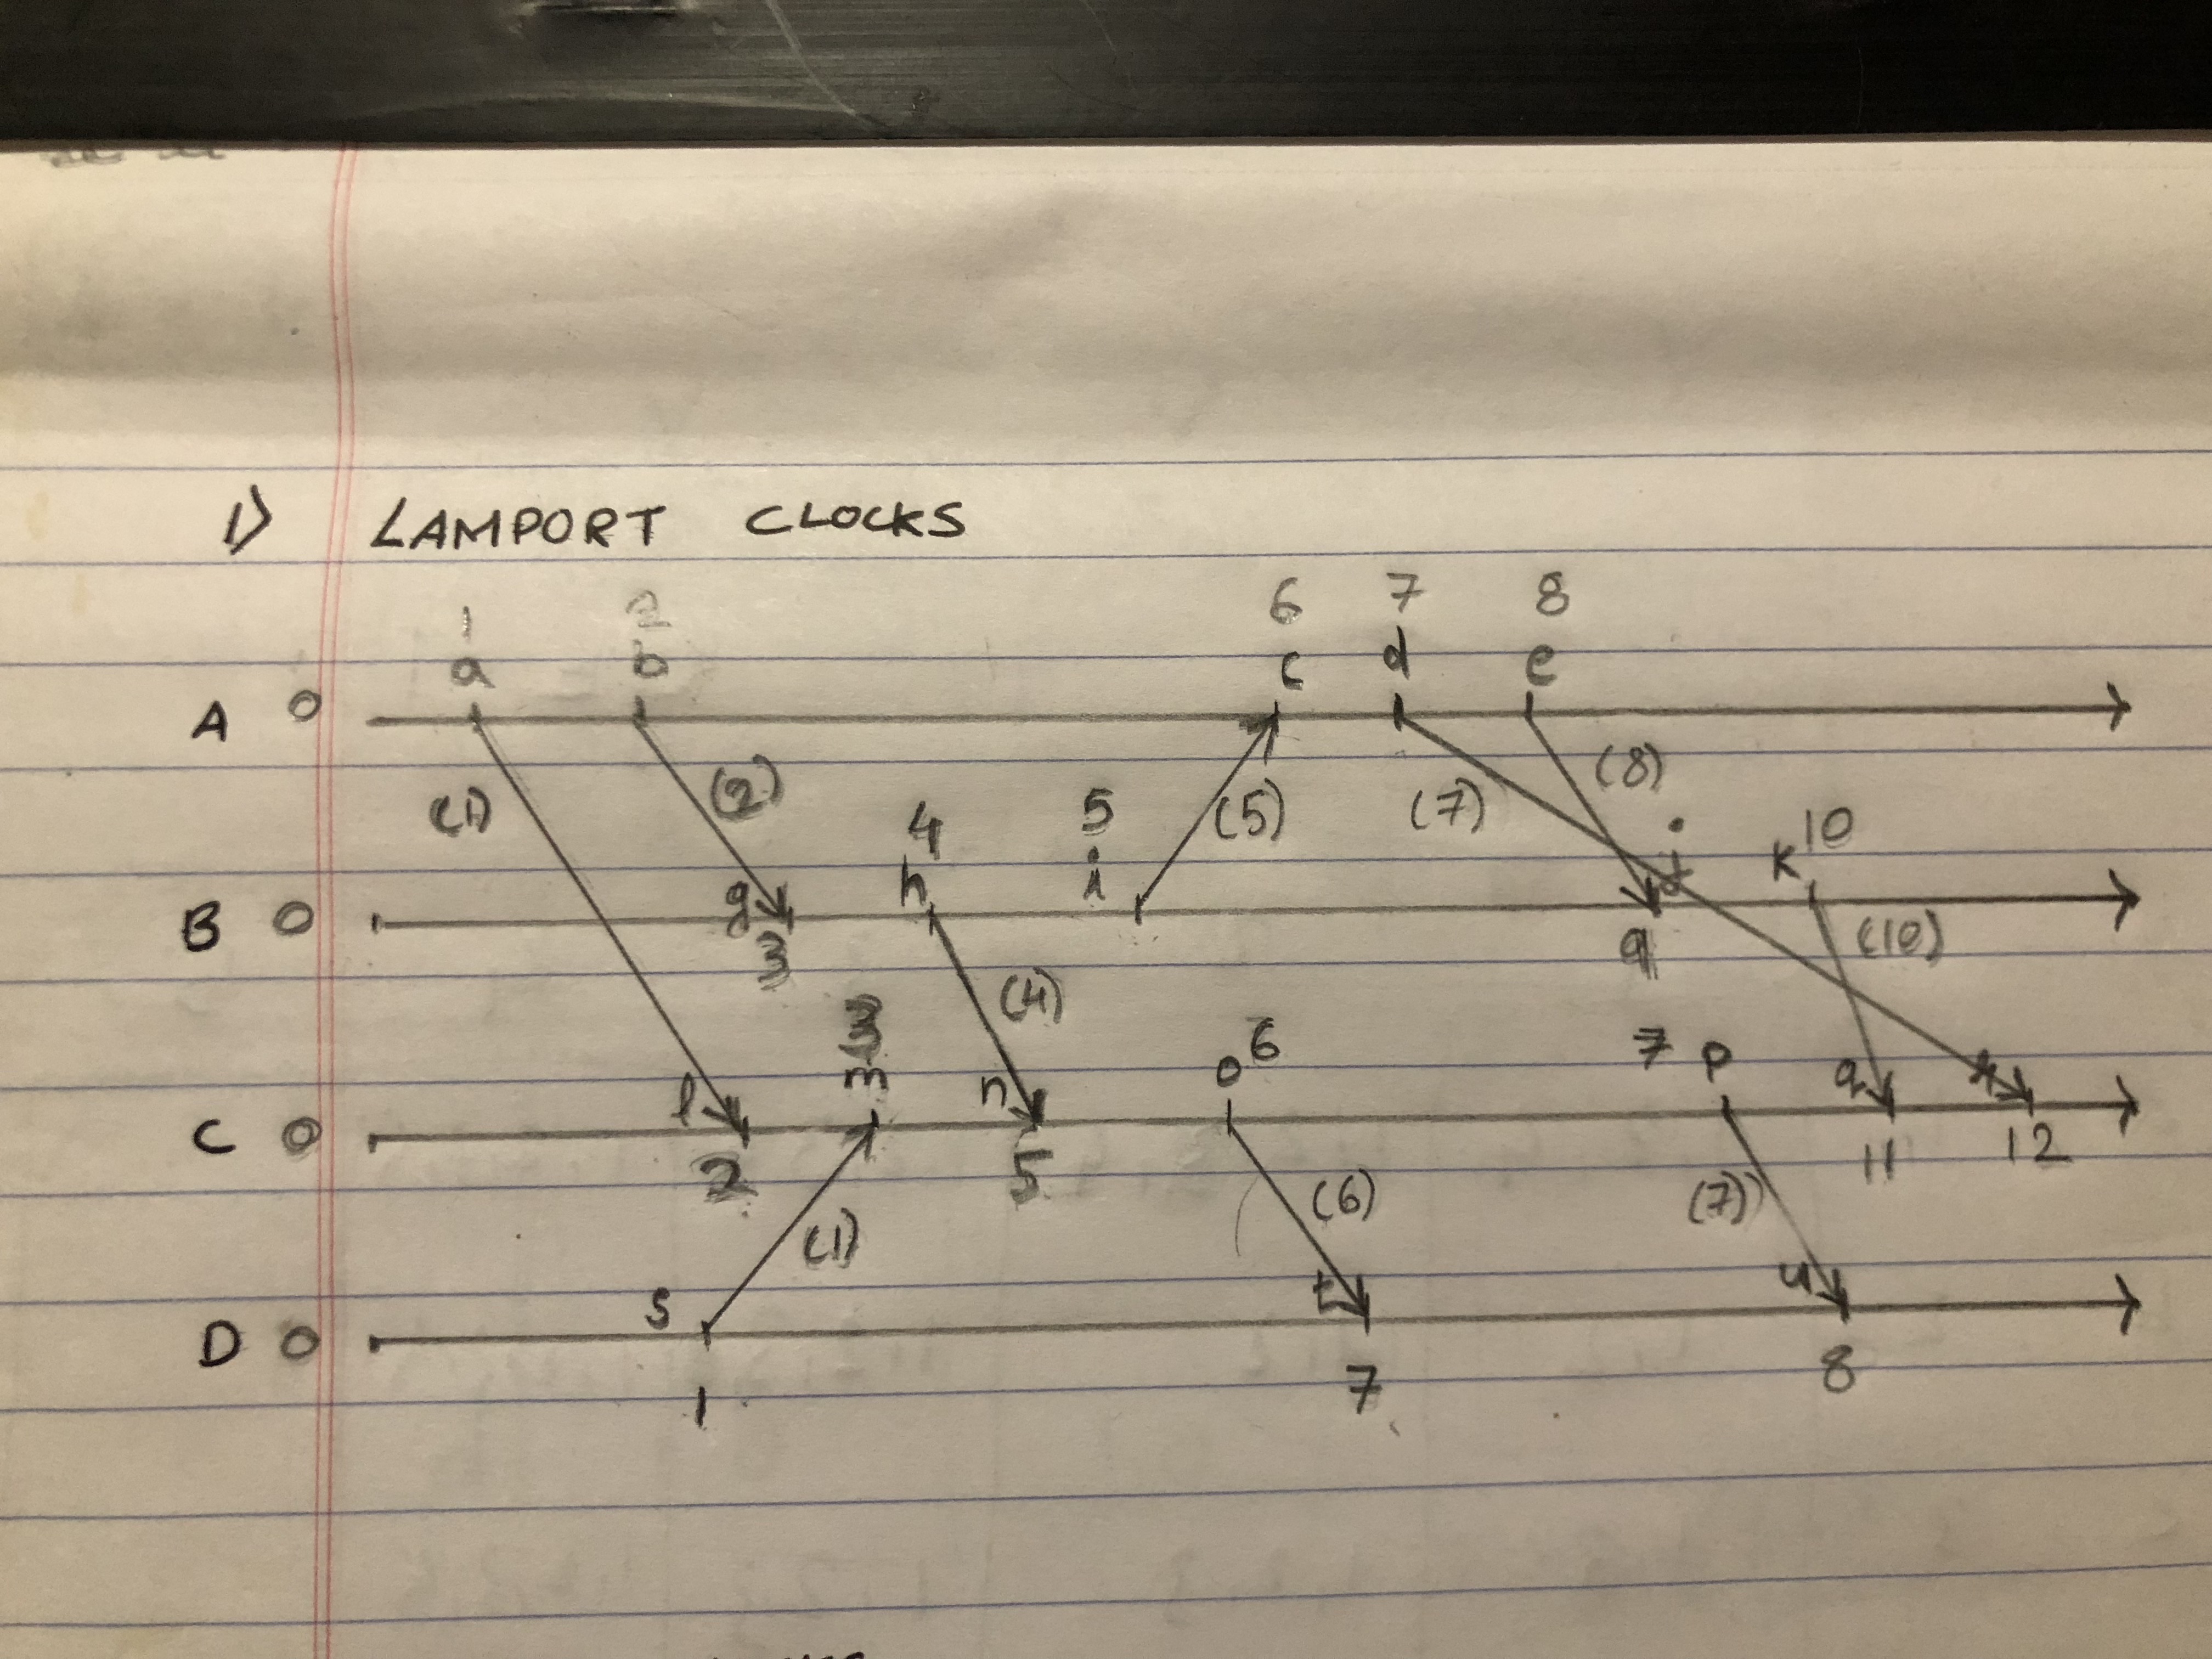 1) LAMPORT CLOCKS
1 2 6 7 8
a b c d e
A 0
(1) (2) (5) (7) (8)
4 5 10
g h i j k
B 0
3 9
(4) (10)
3 6 7
l m n o p q
C 0
2 5 11 12
(1) (6) (7)
s t u
D 0
1 7 8